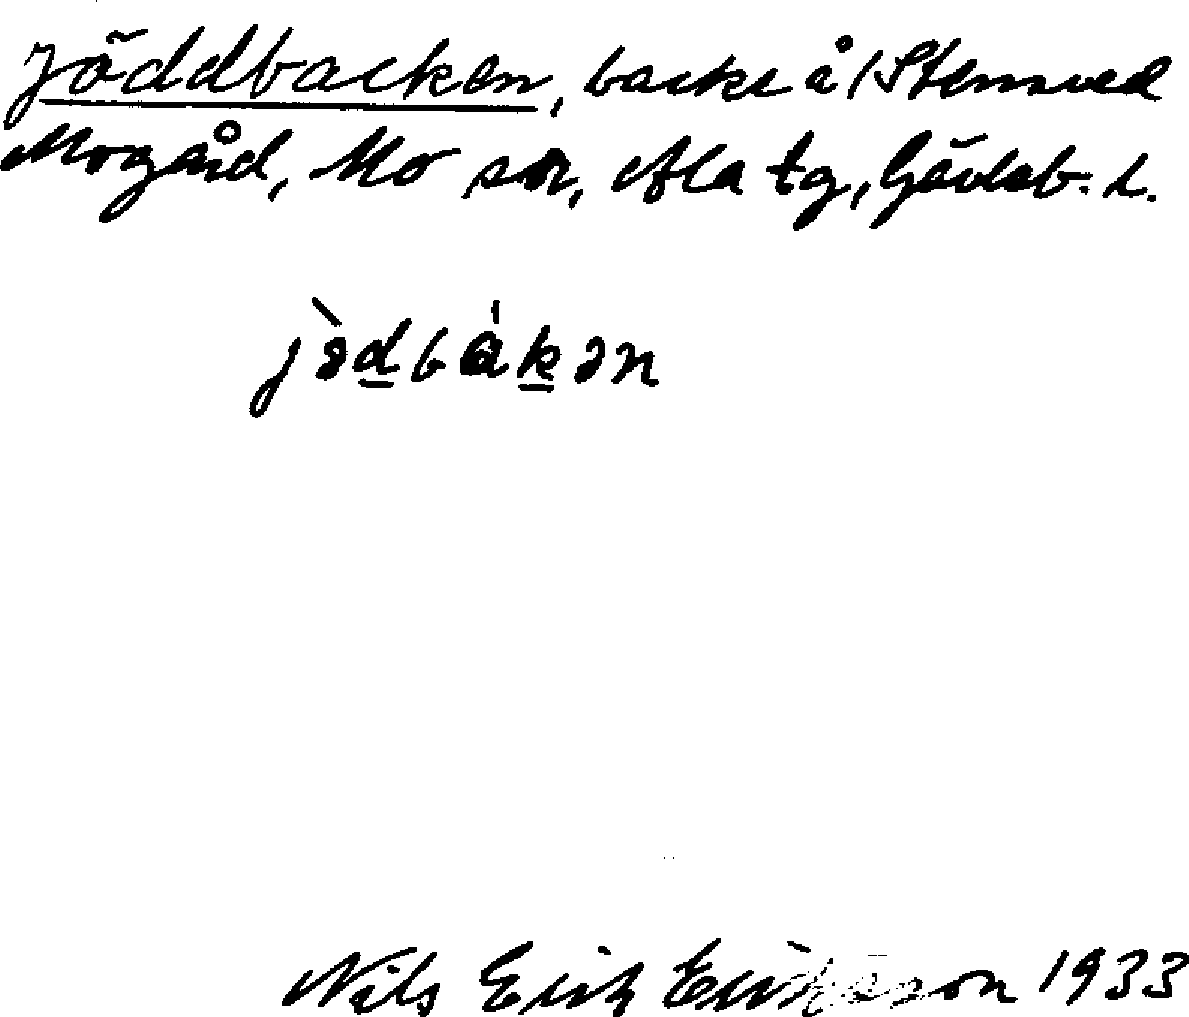 Jöddbacken, backe å /Stensved
Mogård, Mo sn, Ala tg, Gävleb. l.
jòdbàkən
Nils Erik Eriksson 1933